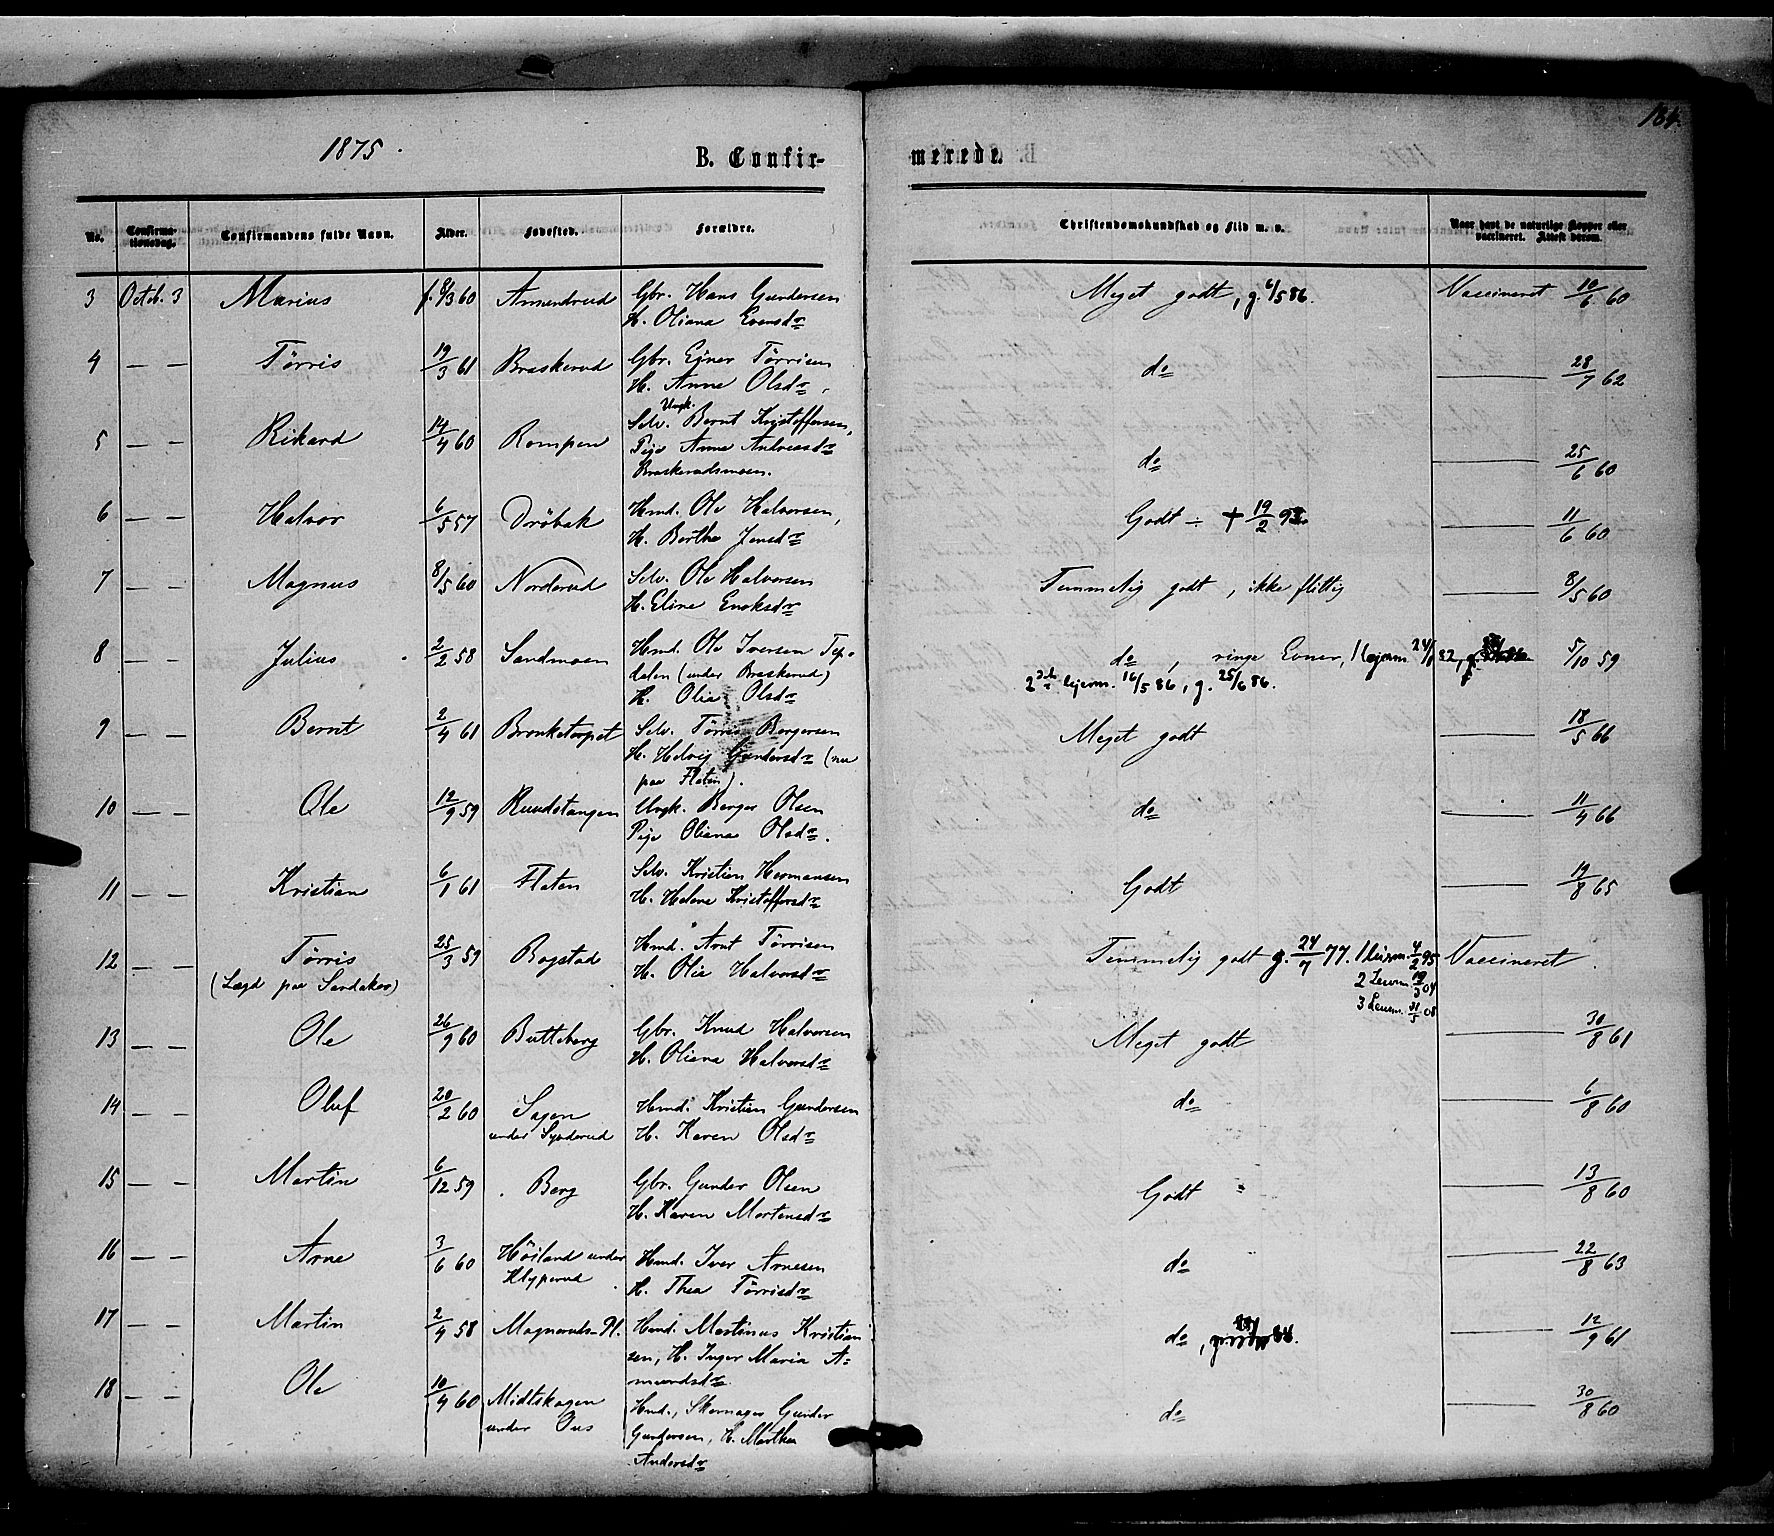 184.
1875.
B. Confirmerede.
No. Confirmationsdag. Confirmandens fulde Navn. Alder. Fødested. Forældre. Christendomskundskab og Flid m. v. Naar havt de naturlige Kopper eller vaccineret. Attest derom.
3 Octob. 3 Marius f. 8/3 60 Amundrud Gbr. Hans Gundersen Meget godt, g. 6/5 86. Vaccineret 10/6 60
H. Oliana Evensdr
4 — — Tørris 19/3 61 Braskerud Gbr. Ejner Tørrisen do — 28/7 62
H. Anne Olsdr,
Ungk.
5 — — Rikard 14/4 60 Rompen Selv. Bernt Kristoffersen, do — 25/6 60
Pige Anne Andreasdr
Braskerudsmoen.
6 — — Halvor 6/5 57 Drøbak Hmd. Ole Halvorsen, Godt ÷ † 19/2 — 11/6 60
H. Berthe Jensdr
7 — — Magnus 8/5 60 Norderud Selv. Ole Halvorsen Temmelig godt, ikke flittig — 8/5 60
H. Eline Enoksdr
8 — — Julius 2/2 58 Sandmoen Hmd. Ole Iversen do, ringe Evner, 1 Lejerm. 24/1 82, g. 5/10 59
dalen (under Braskerud) 2det Lejerm. 16/5 86, g. 25/6 86.
H. Olia Olsdr
9 — — Bernt 2/4 61 Bronketorpet Selv. Tørris Bergersen Meget godt — 18/5 66
H. Helvig Gundersdr (nu
paa Flaten).
10 — — Ole 12/9 59 Rundstangen Ungk. Berger Olsen do — 11/4 66
Pige Oliana Olsdr.
11 — — Kristian 6/1 61 Flaten Selv. Kristian Hermansen Godt — 19/8 65
H. Helene Kristoffersdr
12 — — Tørris 25/3 59 Bogstad Hmd. Arnt Tørrisen Temmelig godt g. 24/7 77. 1 Leierm. 4/2 95 Vaccineret.
(Lægd paa Sandaker) H. Olia Halvorsdr 2 Leierm. 19/3 04
3 Leierm. 31/5 08
13 — — Ole 26/9 60 Butteberg Gbr. Knud Halvorsen Meget godt — 30/8 61
H. Oliana Halvorsdr
14 — — Oluf 20/2 60 Sagen Hmd. Kristian Gundersen do — 6/8 60
under Synderud H. Karen Olsdr
15 — — Martin 6/12 59 Berg Gbr. Gunder Olsen Godt — 13/8 60
H. Karen Mortensdr
16 — — Arne 3/6 60 Høiland under Hmd. Iver Arnesen do — 22/8 63
Klyperud. H. Thea Tørrisdr
17 — — Martin 2/4 58 Magneruds-Pl. Hmd. Martinus Kristian do, 84. — 12/9 61
sen, H. Inger Maria A-
mundsdr.
18 — — Ole 10/4 60 Midtskogen Hmd., Skomager Gunder do — 30/8 60
under Ous Gundersen, H. Marthe
Andersdr